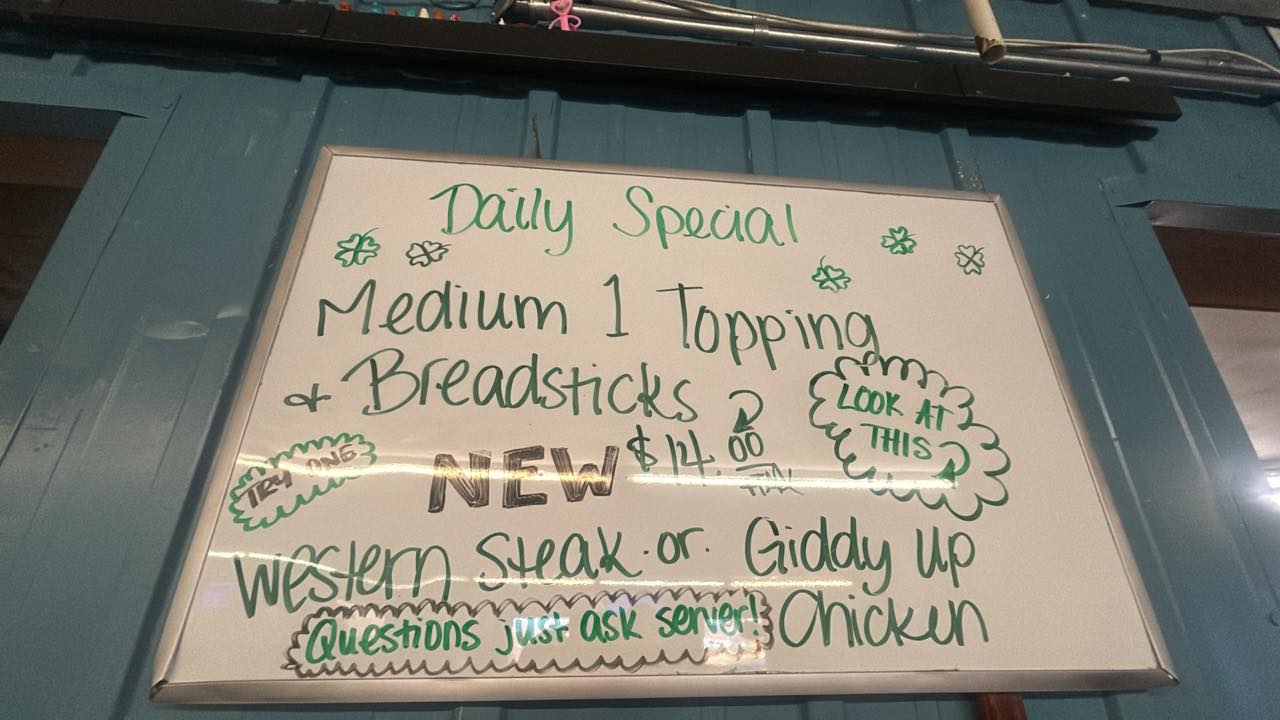 Daily Special
Medium 1 Topping
+ Breadsticks
$14.00
+TAX
LOOK AT
THIS
TRY ONE
NEW
Western Steak or Giddy Up
Chicken
Questions just ask server!